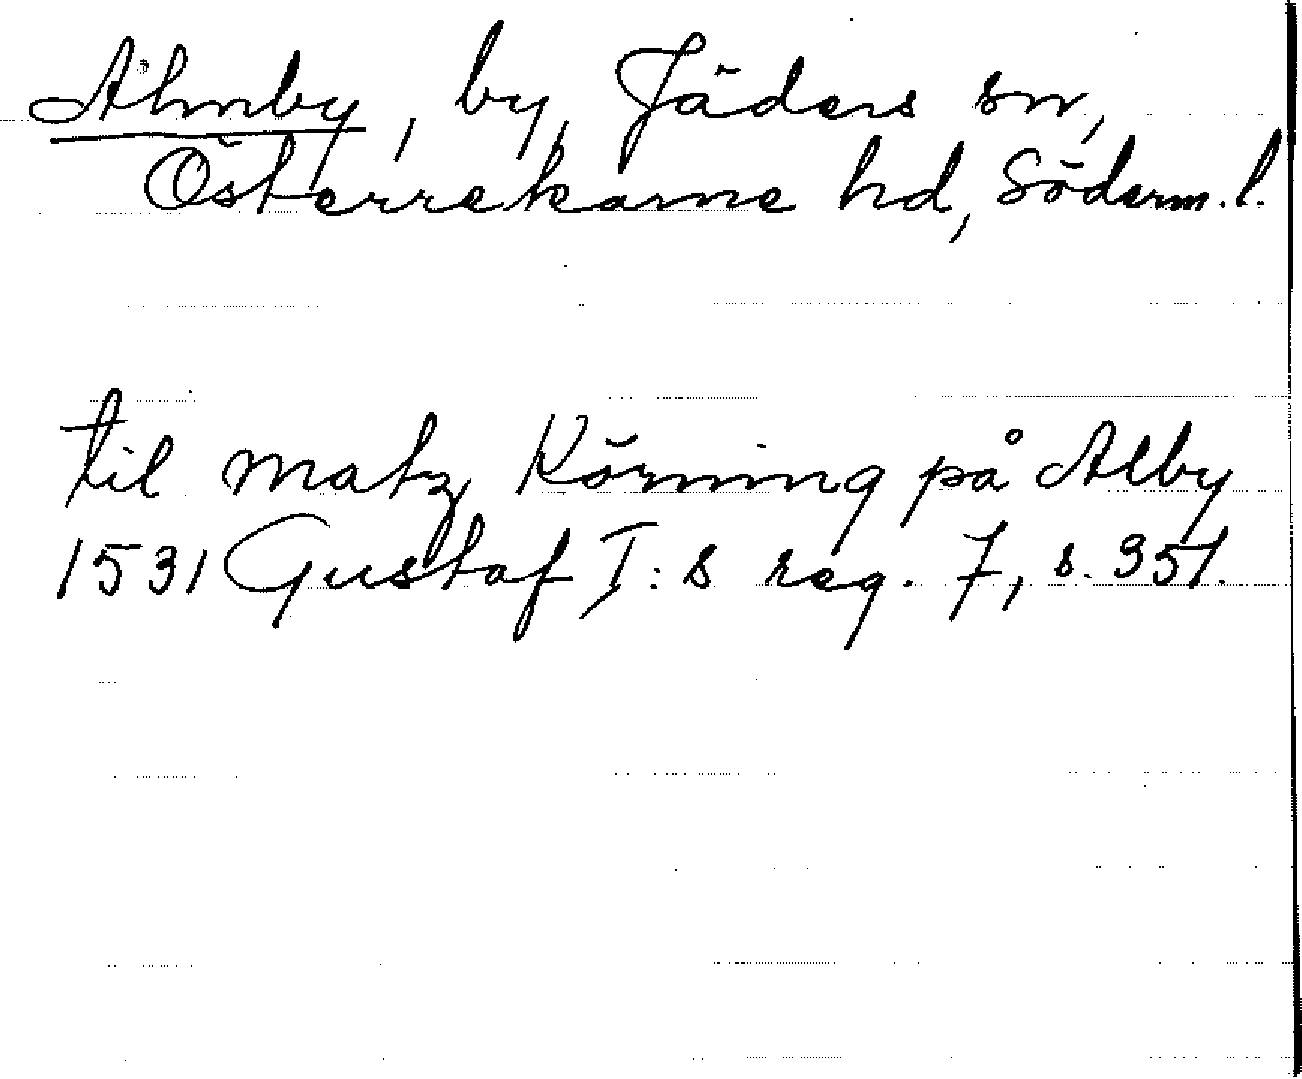 Åhmby, by, Jäders sn,
Österrekarne hd, Söderm. l.
til Matz Körning på Alby
1531 Gustaf I:s reg. 7, s. 351.